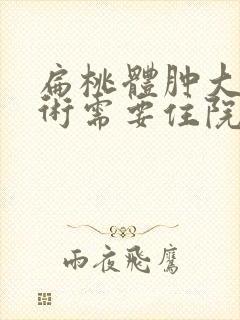 扁桃體肿大
術需要住院
雨夜飛鷹